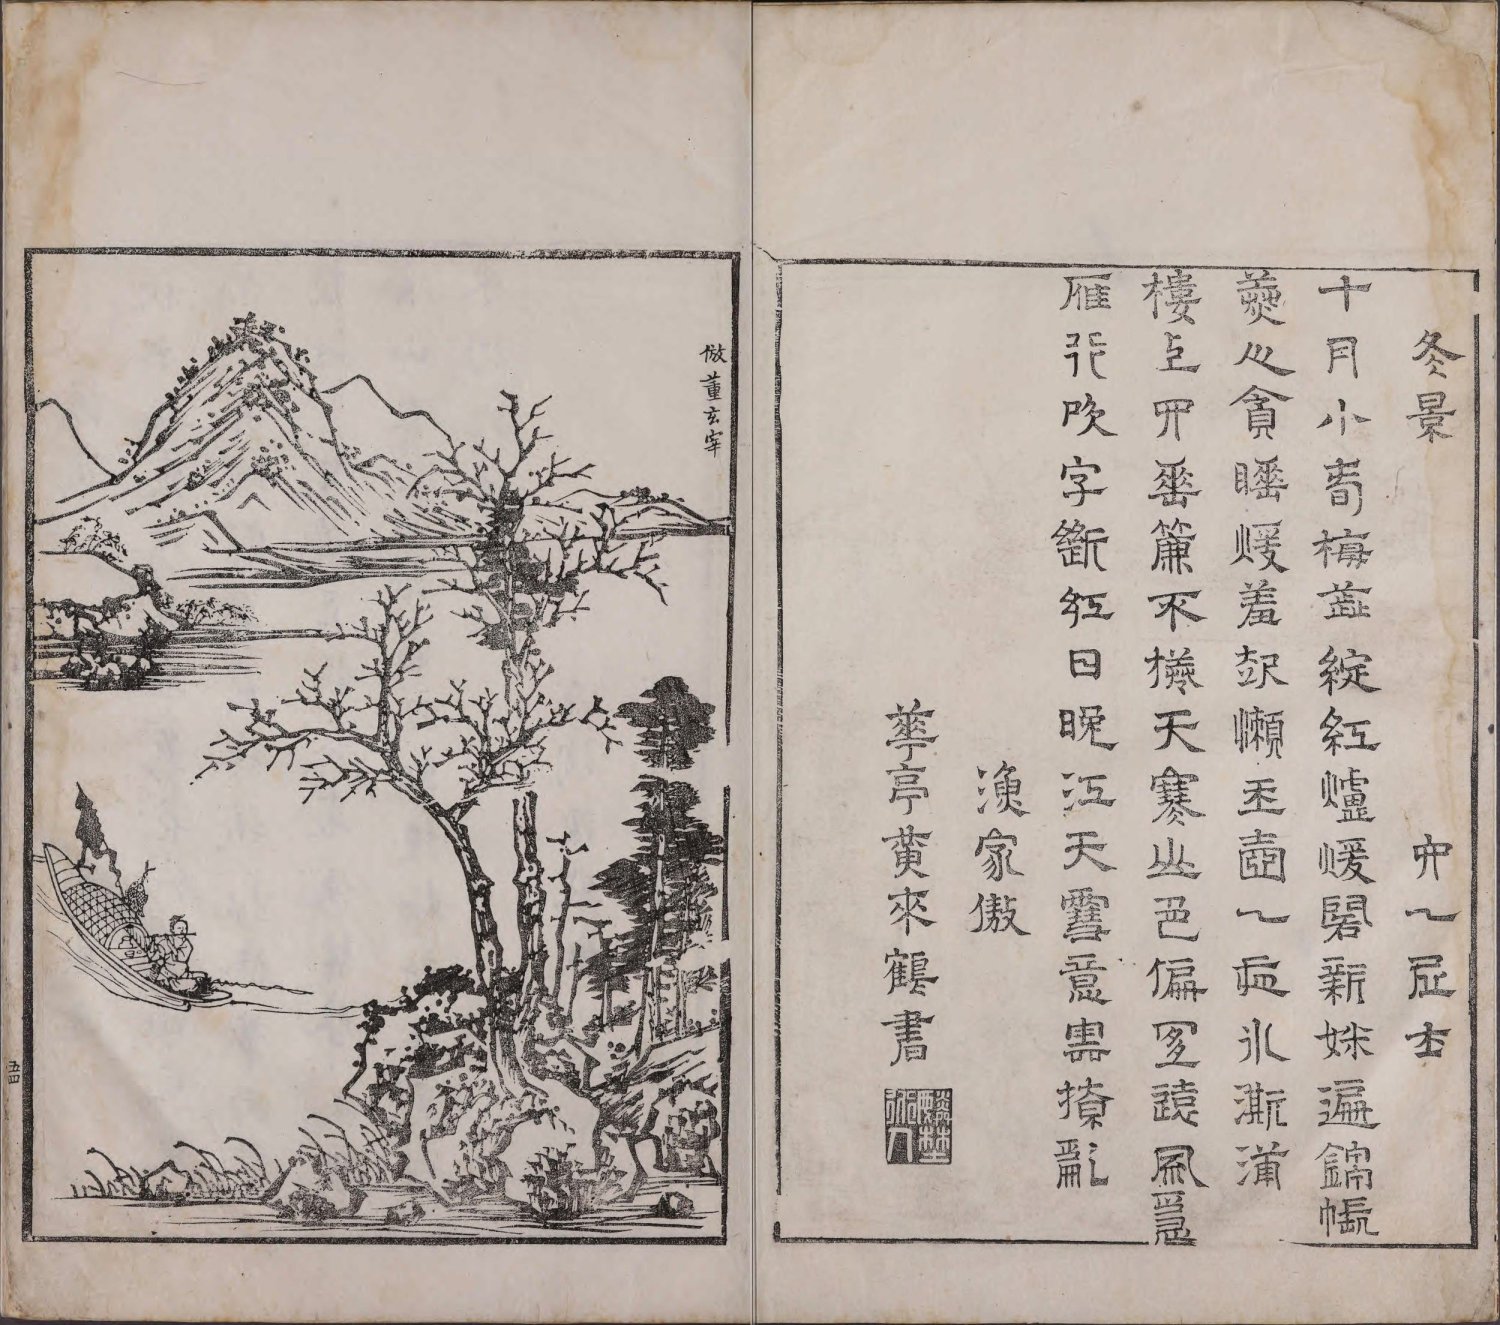 冬景　六一居士
十月小春梅蕋綻紅爐煖閣新妝遍錦帳
美人貪睡煖羞起懶玉壺一夜冰澌滿
樓上四垂簾不捲天寒山色偏宜遠風急
雁行吹字斷紅日晚江天雪意雲撩亂
漁家傲
華亭黃來鶴書
倣董玄宰
五四